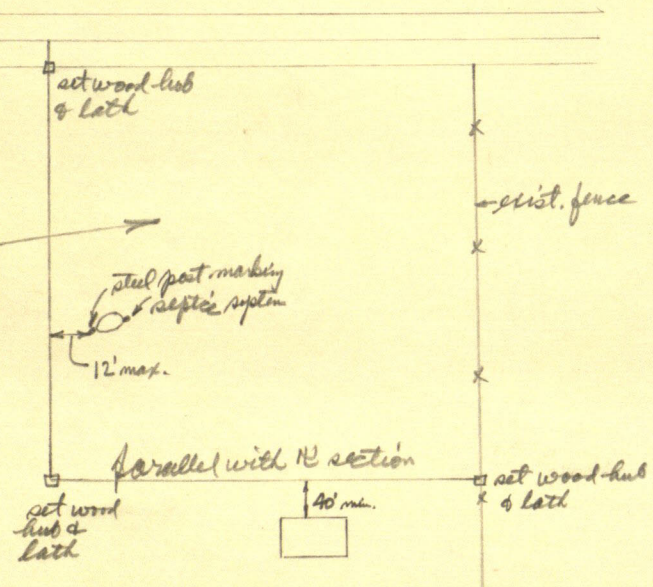 set wood hub
& lath
exist. fence
steel post marking
septic system
12' max.
parallel with section
set wood hub
& lath
40' min.
set wood
hub &
lath